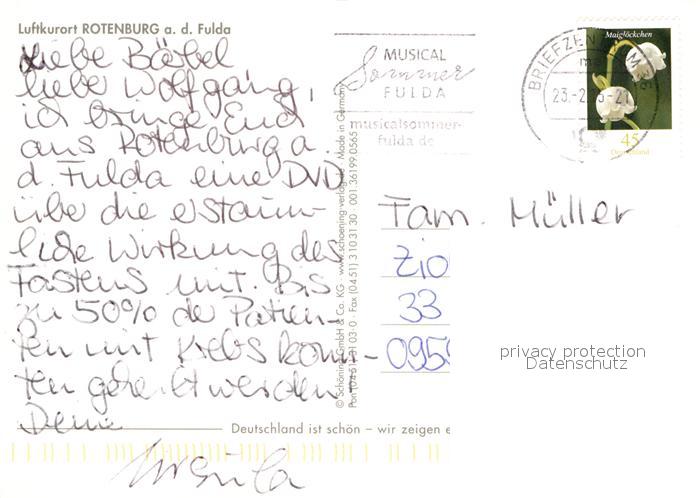 Luftkurort ROTENBURG a. d. Fulda
Liebe Bärbel
liebe Wolfgang,
ich bringe Euch
aus Rotenburg a
d. Fulda eine DVD
über die erstaun-
liche Wirkung des
Fastens mit. Bis
zu 50% der Patien-
ten mit Krebs konn-
ten geheilt werden
Deine
Ursula
MUSICAL
Sommer
FULDA
musicalsommer-
fulda.de
BRIEFZEN
23.-2
Maiglöckchen
45
Deutschland
© Schöning GmbH & Co. KG · www.schoening-verlag.de · Made in Germany
Fax (04 51) 3 10 31 30 · 001.36199.0565
Fam. Müller
Zio
33
095
privacy protection
Datenschutz
Deutschland ist schön – wir zeigen e